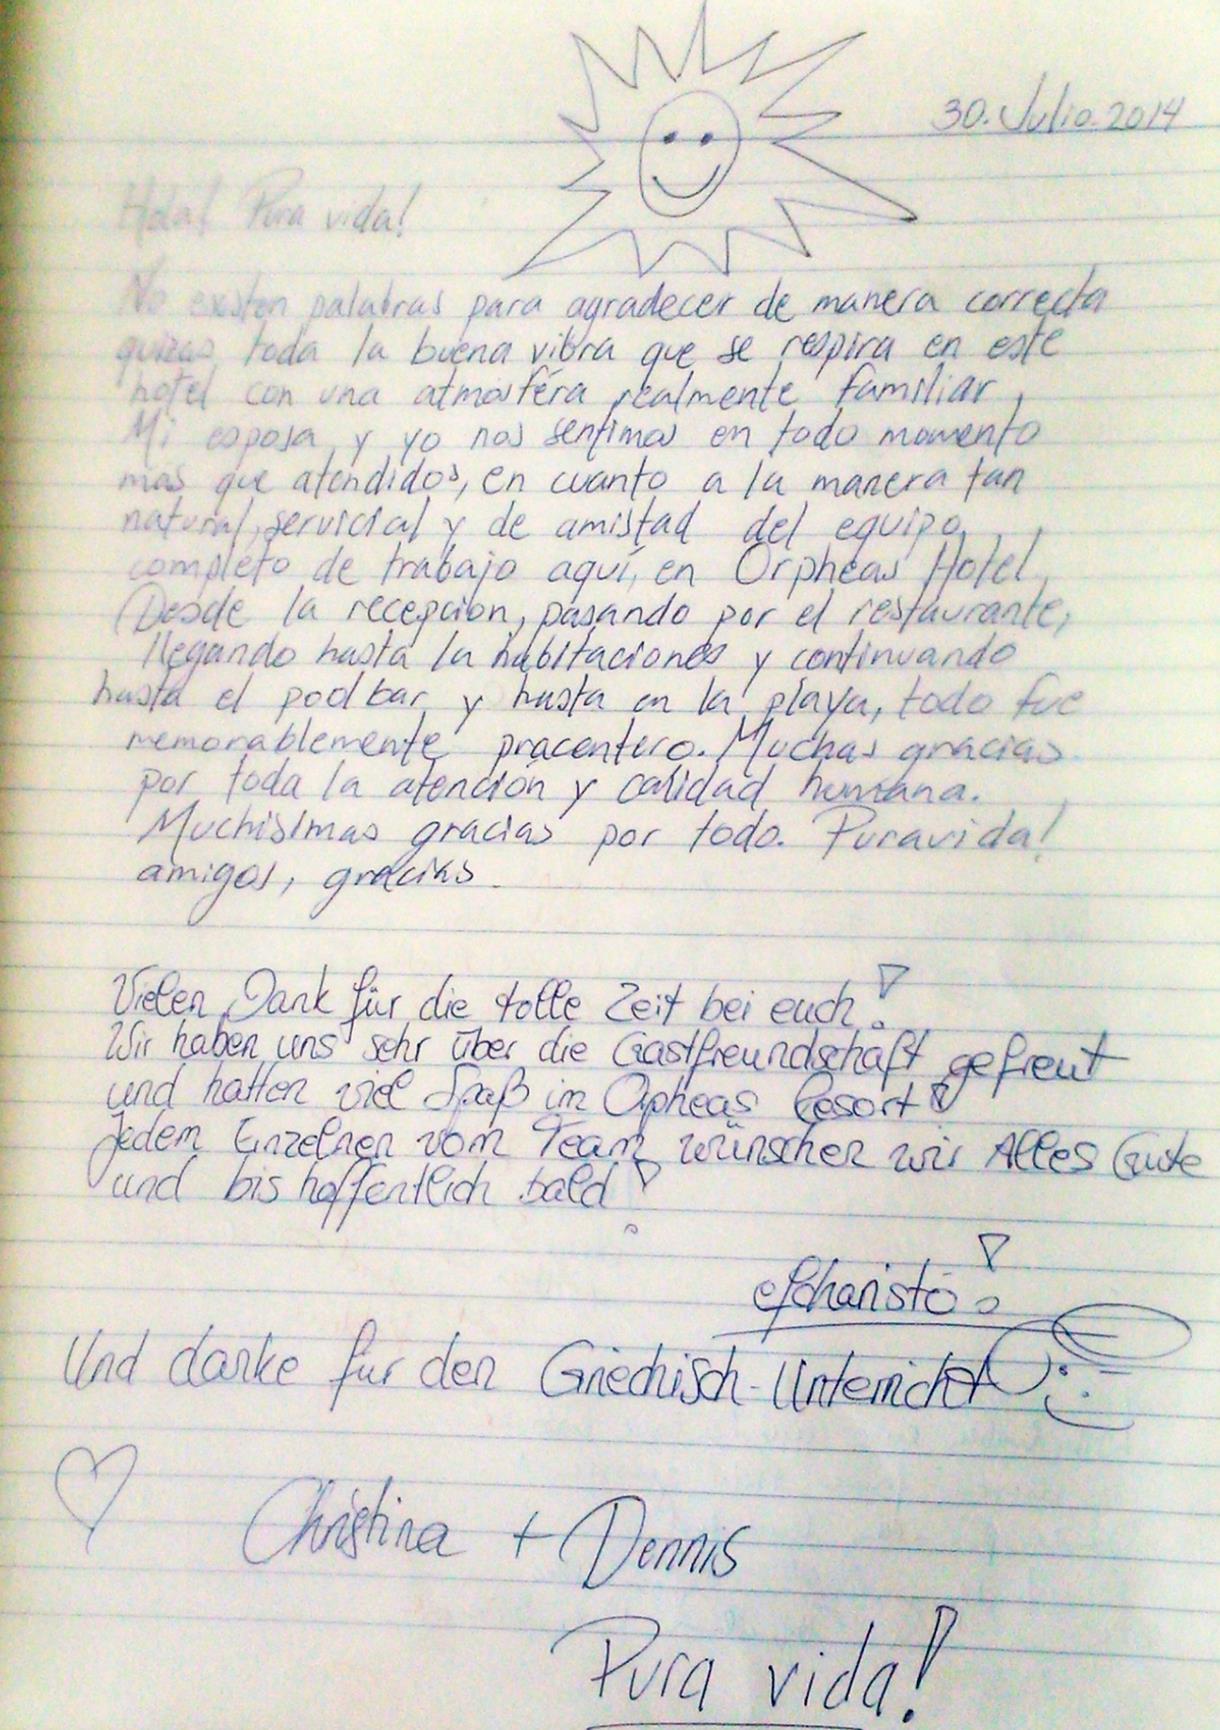 30. Julio. 2014
Hola! Pura vida!
No existen palabras para agradecer de manera correcta
quizas toda la buena vibra que se respira en este
hotel con una atmósféra realmente familiar,
Mi esposa y yo nos sentimos en todo momento
mas que atendidos, en cuanto a la manera tan
natural, servicial y de amistad del equipo
completo de trabajo aquí, en Orpheas Hotel,
Desde la recepcion, pasando por el restaurante,
llegando hasta la habitaciones y continuando
hasta el pool bar y hasta en la playa, todo fue
memorablemente pracentero. Muchas gracias
por toda la atención y calidad humana.
Muchisimas gracias por todo. Puravida!
amigos, gracias.
Vielen Dank für die tolle Zeit bei euch!
Wir haben uns sehr über die Gastfreundschaft gefreut
und hatten viel Spaß im Opheas Resort!
Jedem Einzelnen vom Team wünschen wir Alles Gute
und bis hoffentlich bald!
efcharistó!
Und danke für den Griechisch-Unterricht
Christina + Dennis
Pura vida!